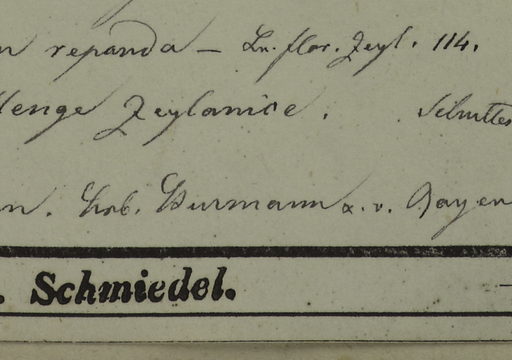 n repanda — Ln. flor. Zeyl. 114.
lenge Zeylanice.
n. herb. Burmann & v. Royen
. Schmiedel.